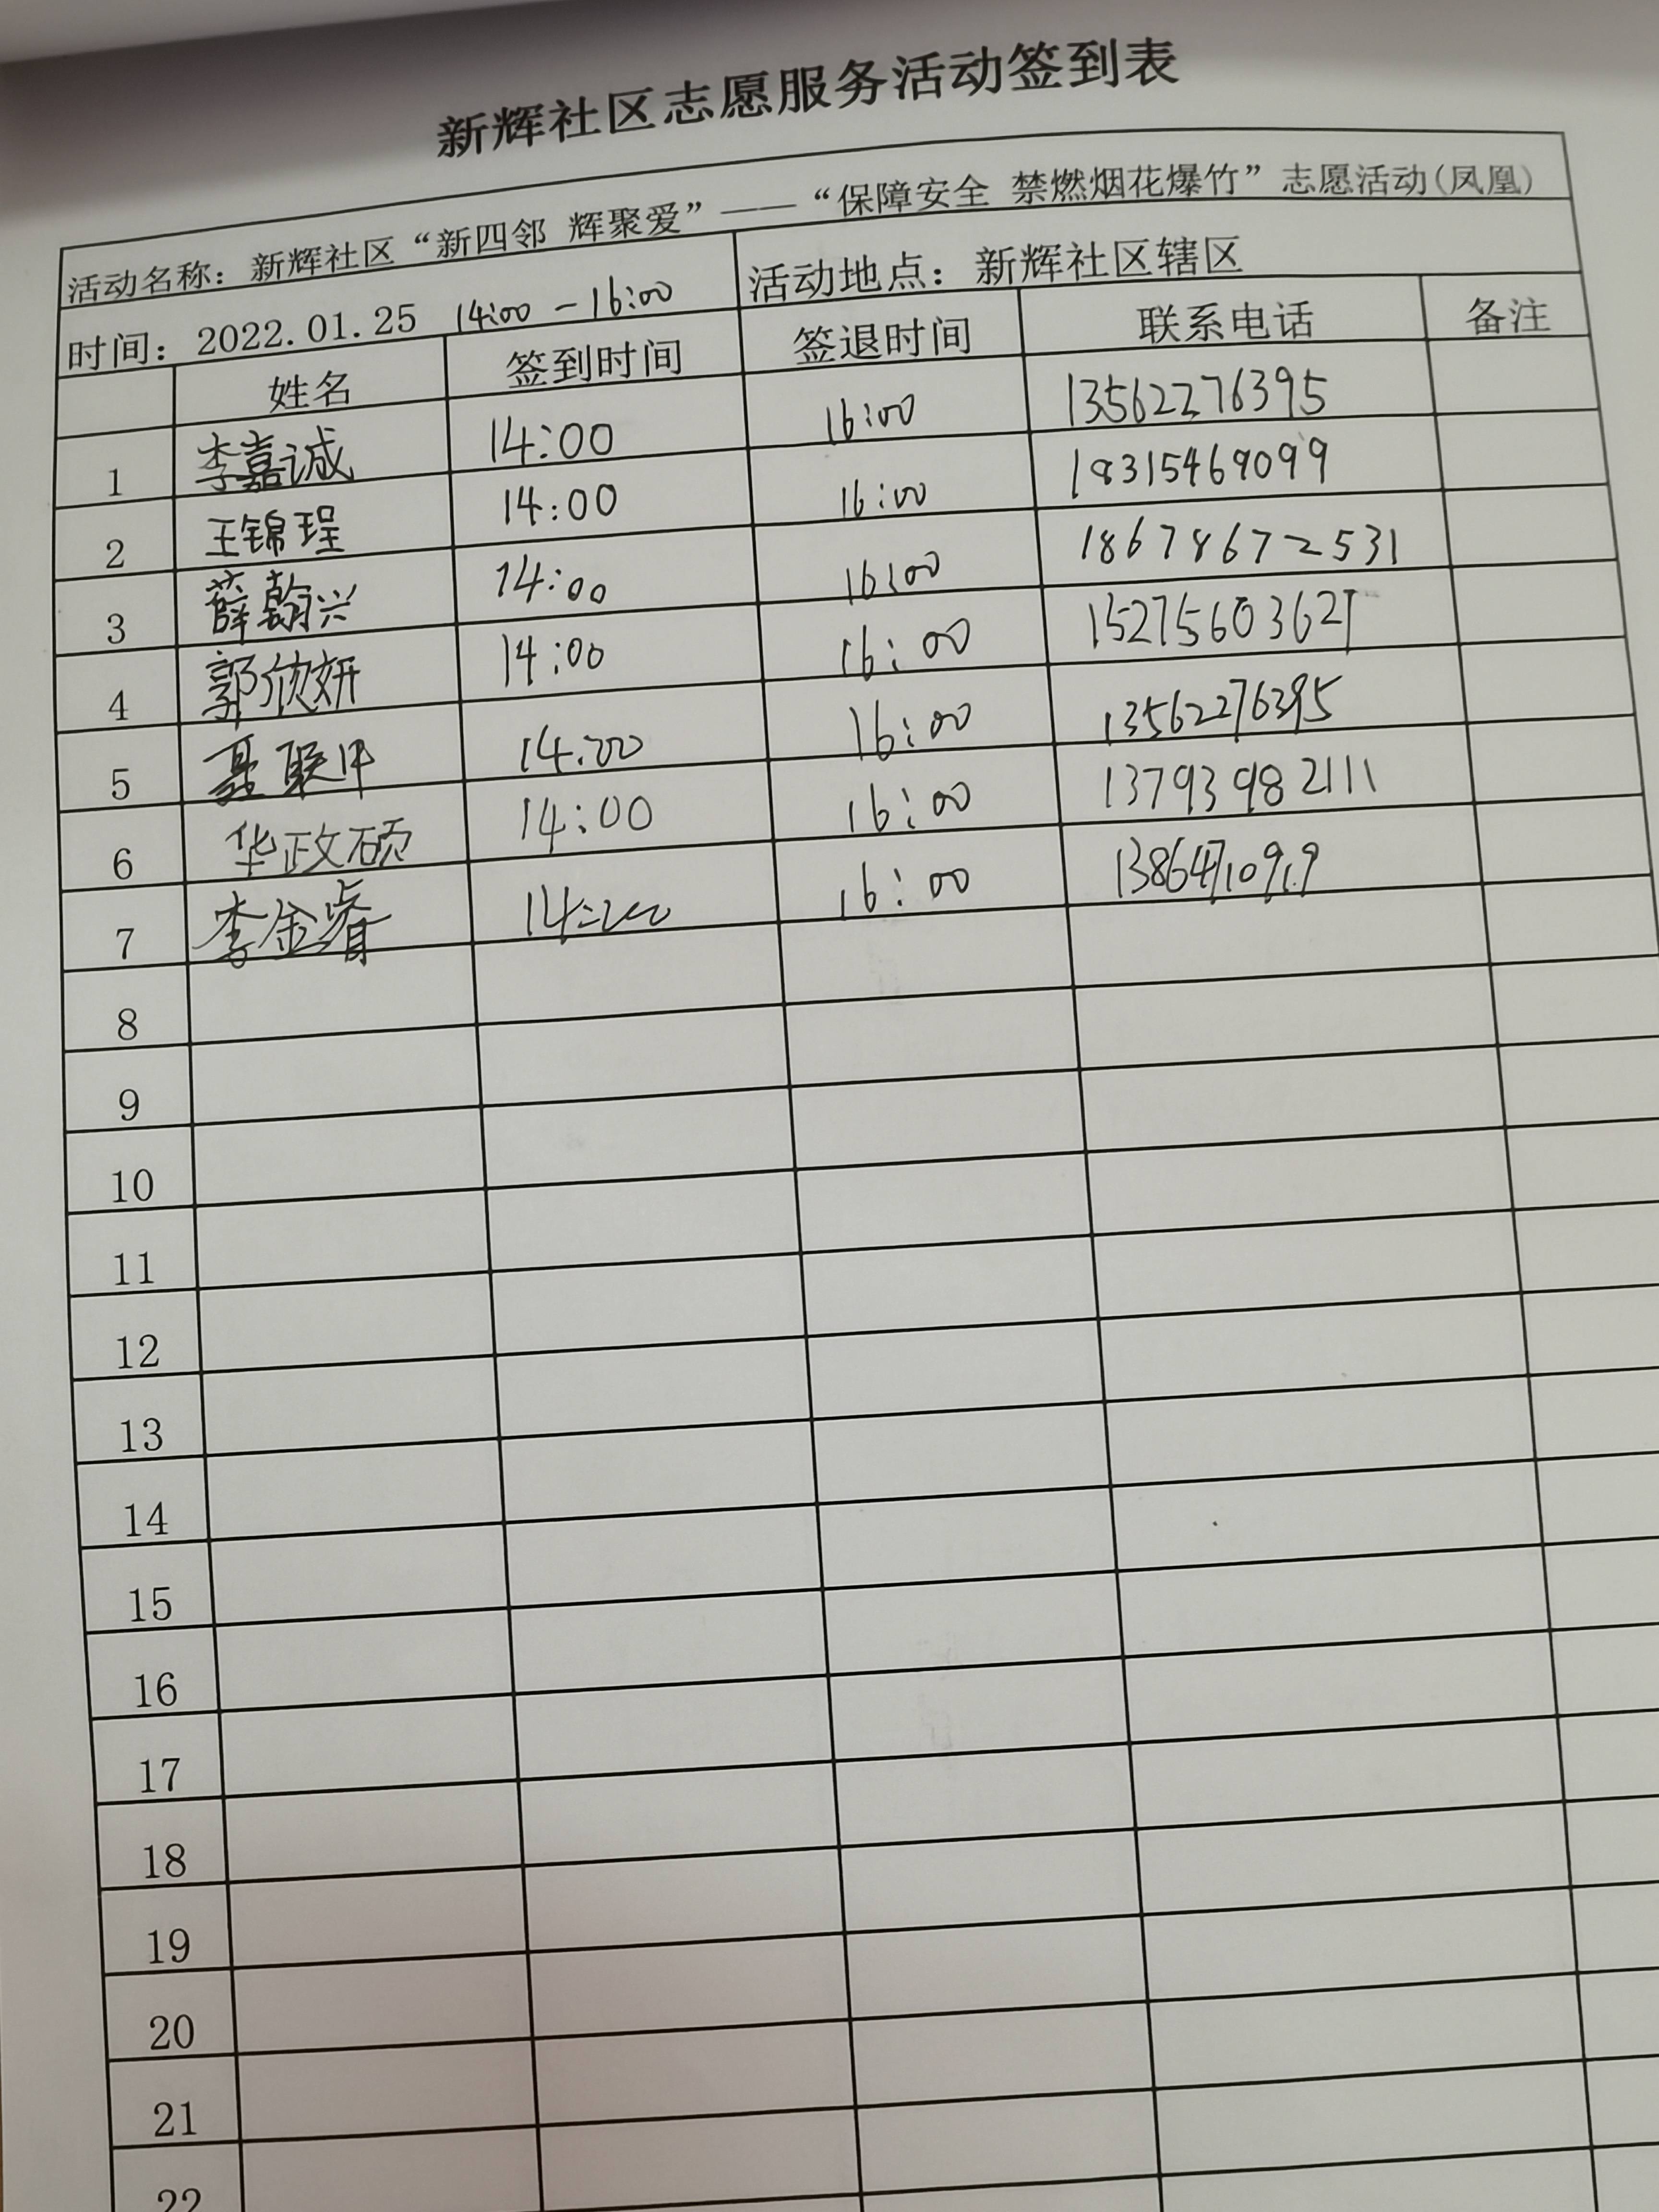 新辉社区志愿服务活动签到表
活动名称：新辉社区“新四邻 辉聚爱”——“保障安全 禁燃烟花爆竹”志愿活动(凤凰)
时间：2022.01.25 14:00-16:00 活动地点：新辉社区辖区
姓名 签到时间 签退时间 联系电话 备注
1 李嘉诚 14:00 16:00 13562276395
2 王锦珵 14:00 16:00 18315469099
3 薛翰兴 14:00 16:00 18678672531
4 郭欣妍 14:00 16:00 15275603627
5 聂联甲 14:00 16:00 13562276395
6 华政硕 14:00 16:00 13793982111
7 李金睿 14:00 16:00
8
9
10
11
12
13
14
15
16
17
18
19
20
21
22